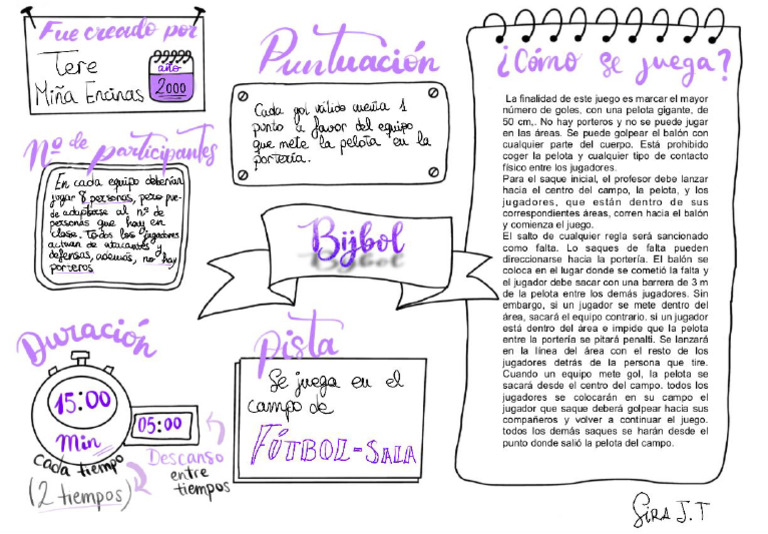 Fue creado por
Tere
Miña Encinas
año
2000
Puntuación
Cada gol válido cuenta 1
punto a favor del equipo
que mete la pelota en la
portería.
¿Cómo se juega?
La finalidad de este juego es marcar el mayor
número de goles, con una pelota gigante, de
50 cm,. No hay porteros y no se puede jugar
en las áreas. Se puede golpear el balón con
cualquier parte del cuerpo. Está prohibido
coger la pelota y cualquier tipo de contacto
físico entre los jugadores.
Para el saque inicial, el profesor debe lanzar
hacia el centro del campo, la pelota, y los
jugadores, que están dentro de sus
correspondientes áreas, corren hacia el balón
y comienza el juego.
El salto de cualquier regla será sancionado
como falta. Lo saques de falta pueden
direccionarse hacia la portería. El balón se
coloca en el lugar donde se cometió la falta y
el jugador debe sacar con una barrera de 3 m
de la pelota entre los demás jugadores. Sin
embargo, si un jugador se mete dentro del
área, sacará el equipo contrario. si un jugador
está dentro del área e impide que la pelota
entre la portería se pitará penalti. Se lanzará
en la línea del área con el resto de los
jugadores detrás de la persona que tire.
Cuando un equipo mete gol, la pelota se
sacará desde el centro del campo. todos los
jugadores se colocarán en su campo el
jugador que saque deberá golpear hacia sus
compañeros y volver a continuar el juego.
todos los demás saques se harán desde el
punto donde salió la pelota del campo.
Nº de participantes
En cada equipo deberían
jugar 8 personas, pero pue-
de adaptarse al nº de
personas que hay en
clase. Todos los jugadores
actúan de atacantes y
defensas, además, no hay
porteros
Bijbol
Bijbol
Duración
15:00
Min
cada tiempo
(2 tiempos)
05:00
Descanso
entre
tiempos
Pista
Se juega en el
campo de
FÚTBOL-SALA
SIRA J.T